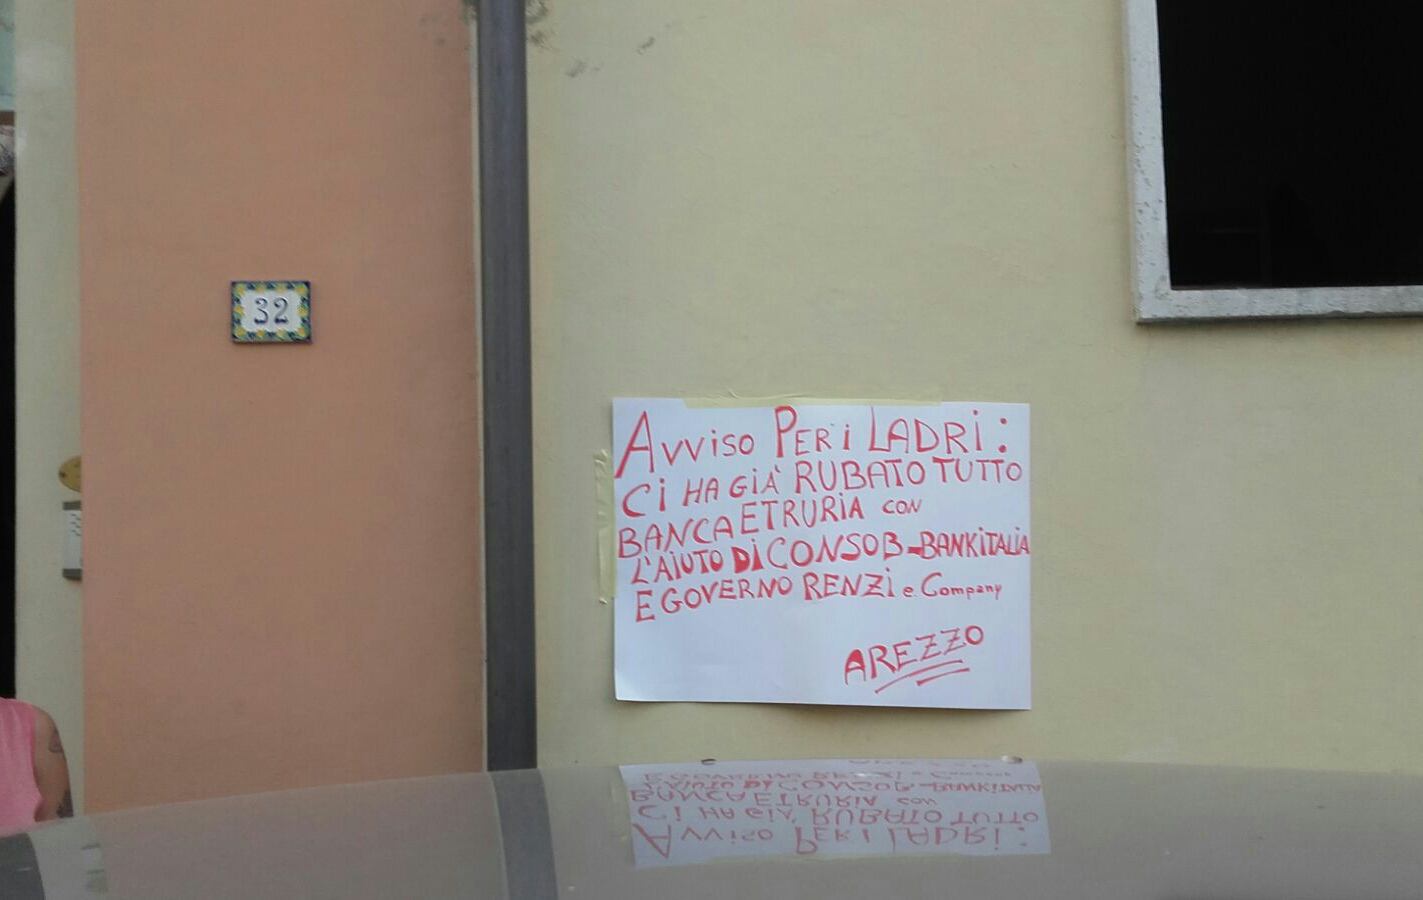 32
Avviso PER i LADRi :
Ci HA GiÀ RUBATO TUTTO
BANCA ETRURiA CON
L'AiUTO Di CONSOB - BANKiTALiA
E GOVERNO RENZi e Company
AREZZO